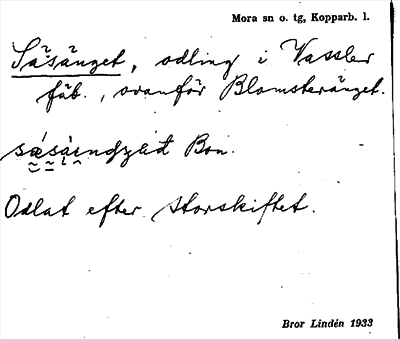 Mora sn o. tg, Kopparb. l.
Såsänget, odling i Vassler
fäb., ovanför Blomsteränget.
Bon.
Odlat efter storskiftet.
Bror Lindén 1933